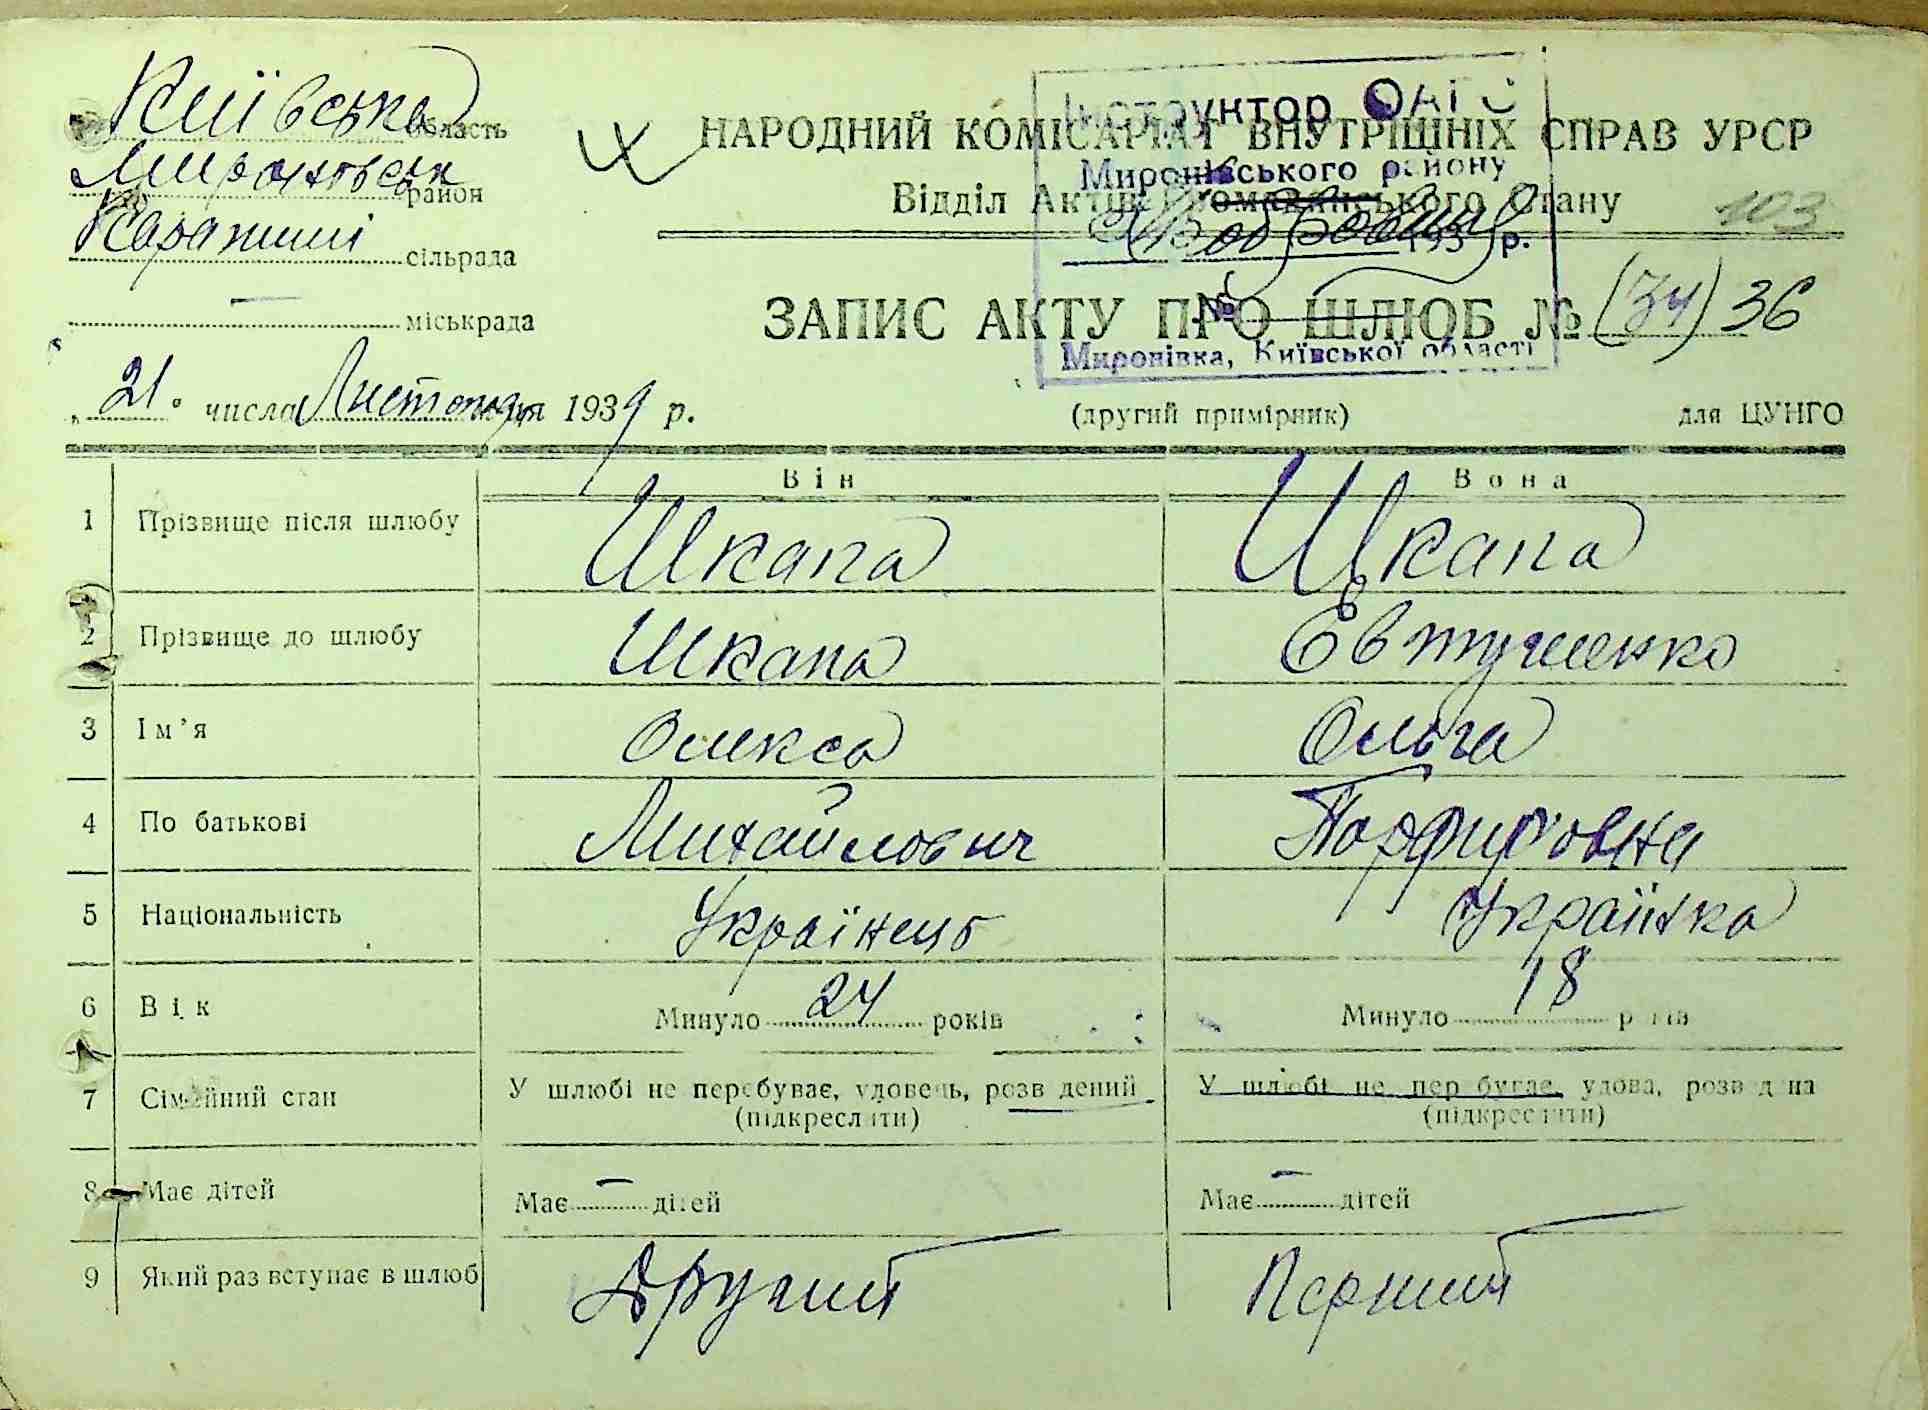 Київська область
Мироновськ район
Карапиші сільрада
міськрада
НАРОДНИЙ КОМІСАРІАТ ВНУТРІШНІХ СПРАВ УРСР
Відділ Актів Громадянського Стану
103
Інструктор ОАГС
Миронівського району
193 р.
№
Миронівка, Київської області
ЗАПИС АКТУ ПРО ШЛЮБ № (34) 36
„21" числа Листопада 1939 р.
(другий примірник)
для ЦУНГО
Він Вона
1 Прізвище після шлюбу Шкапа Шкапа
2 Прізвище до шлюбу Шкапа Євтушенко
3 Ім'я Олекса Ольга
4 По батькові Михайлович Порфировна
5 Національність Українець Українка
6 Вік Минуло 24 років Минуло 18 років
7 Сімейний стан У шлюбі не перебуває, удовець, розведений У шлюбі не перебуває, удова, розведена
(підкреслити) (підкреслити)
8 Має дітей Має — дітей Має — дітей
9 Який раз вступає в шлюб Другий Перший